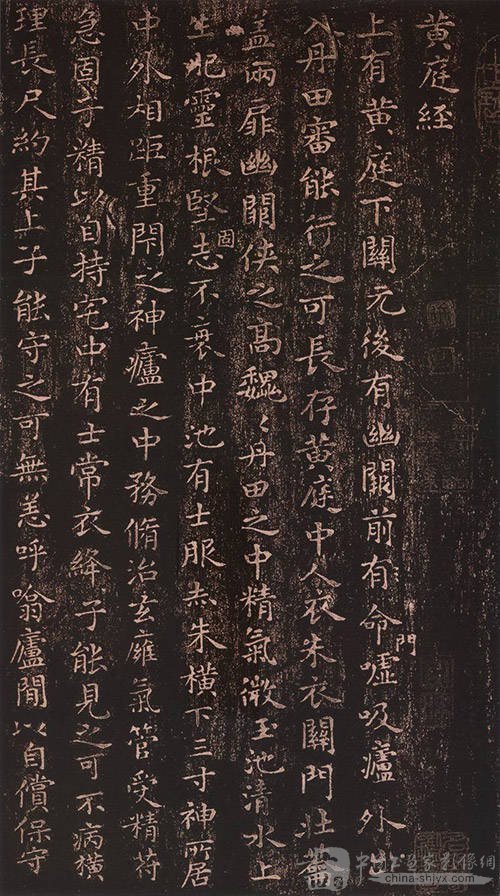 黄庭経
上有黄庭下關元後有幽闕前有命門嘘吸廬外出
入丹田審能行之可長存黄庭中人衣朱衣關門壮蘥
盖兩扉幽闕侠之高魏〻丹田之中精氣微玉池清水上
生肥靈根堅固志不衰中池有士服赤朱横下三寸神所居
中外相距重閇之神廬之中務脩治玄廱氣管受精符
急固子精以自持宅中有士常衣絳子能見之可不病横
理長尺約其上子能守之可無恙呼噏廬間以自償保守
china-shiyx.com